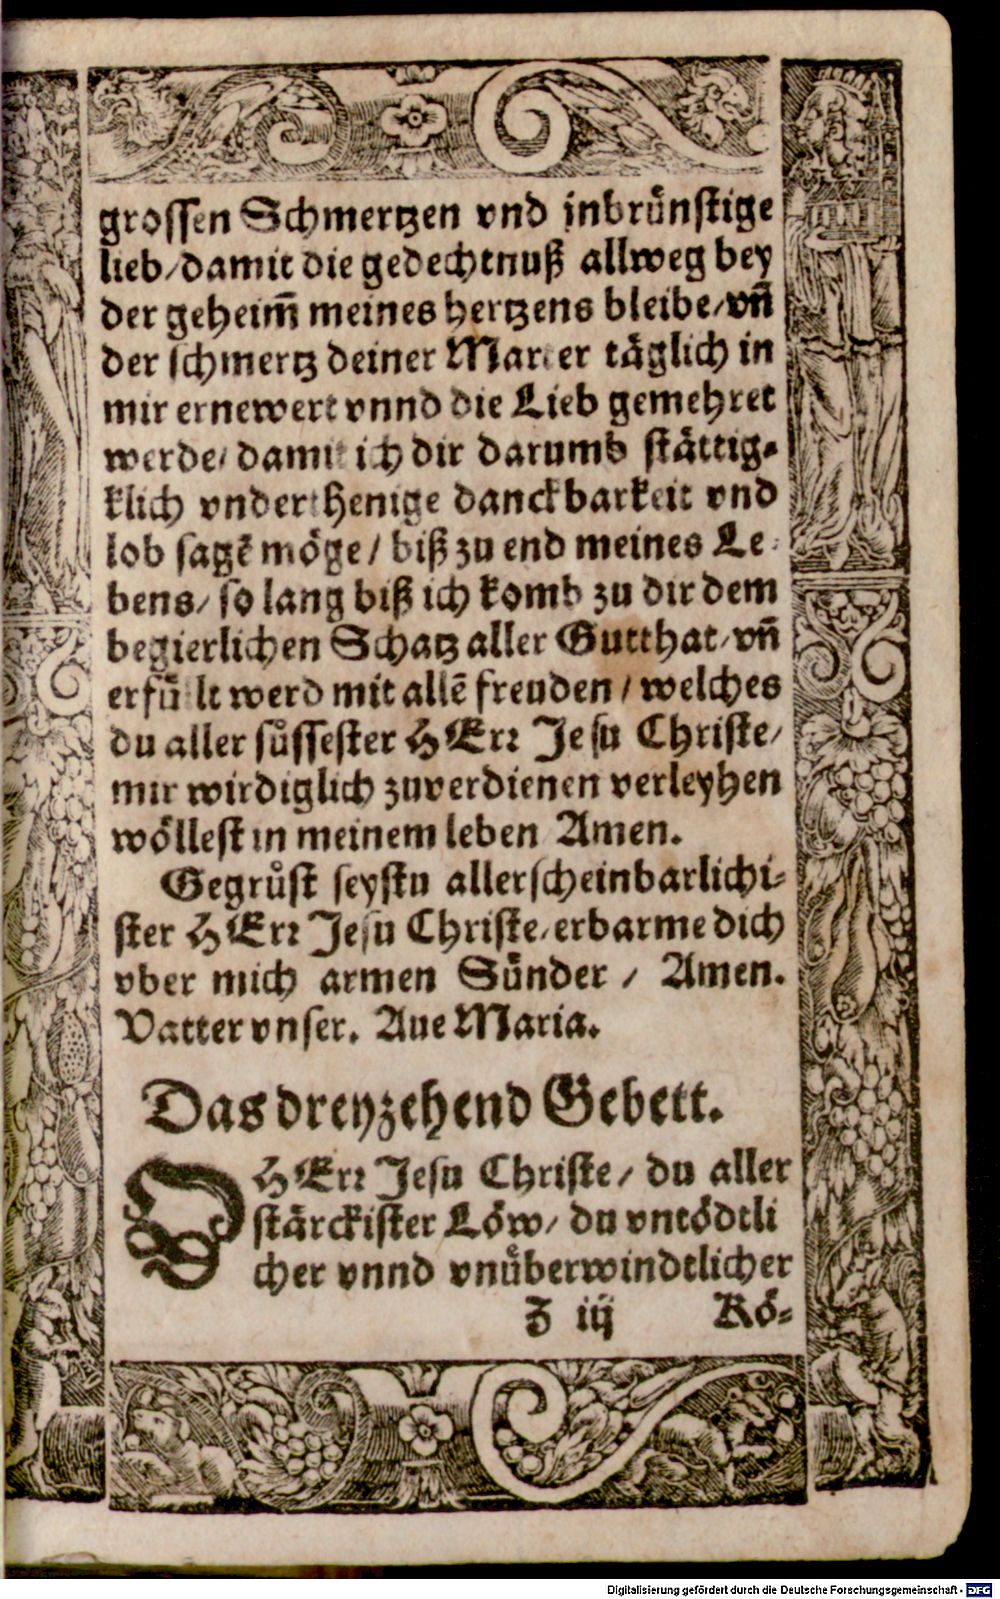 grossen Schmertzen vnd jnbrünstige
lieb/damit die gedechtnuß allweg bey
der geheim̃ meines hertzens bleibe/vñ
der schmertz deiner Marter täglich in
mir ernewert vnnd die Lieb gemehret
werde/ damit ich dir darumb stättig-
klich vnderthenige danckbarkeit vnd
lob sagẽ möge / biß zu end meines Le-
bens/ so lang biß ich komb zu dir dem
begierlichen Schatz aller Gutthat/vñ
erfüllt werd mit allẽ freuden / welches
du aller süssester HErr Jesu Christe/
mir wirdiglich zuverdienen verleyhen
wöllest in meinem leben Amen.
Gegrůst seystu allerscheinbarlichi-
ster HErr Jesu Christe/erbarme dich
vber mich armen Sünder / Amen.
Vatter vnser. Aue Maria.
Das dreyzehend Gebett.
O HErr Jesu Christe/ du aller
stärckister Löw/ du vntödtli
cher vnnd vnůberwindtlicher
Z iij Kö-
Digitalisierung gefördert durch die Deutsche Forschungsgemeinschaft - DFG